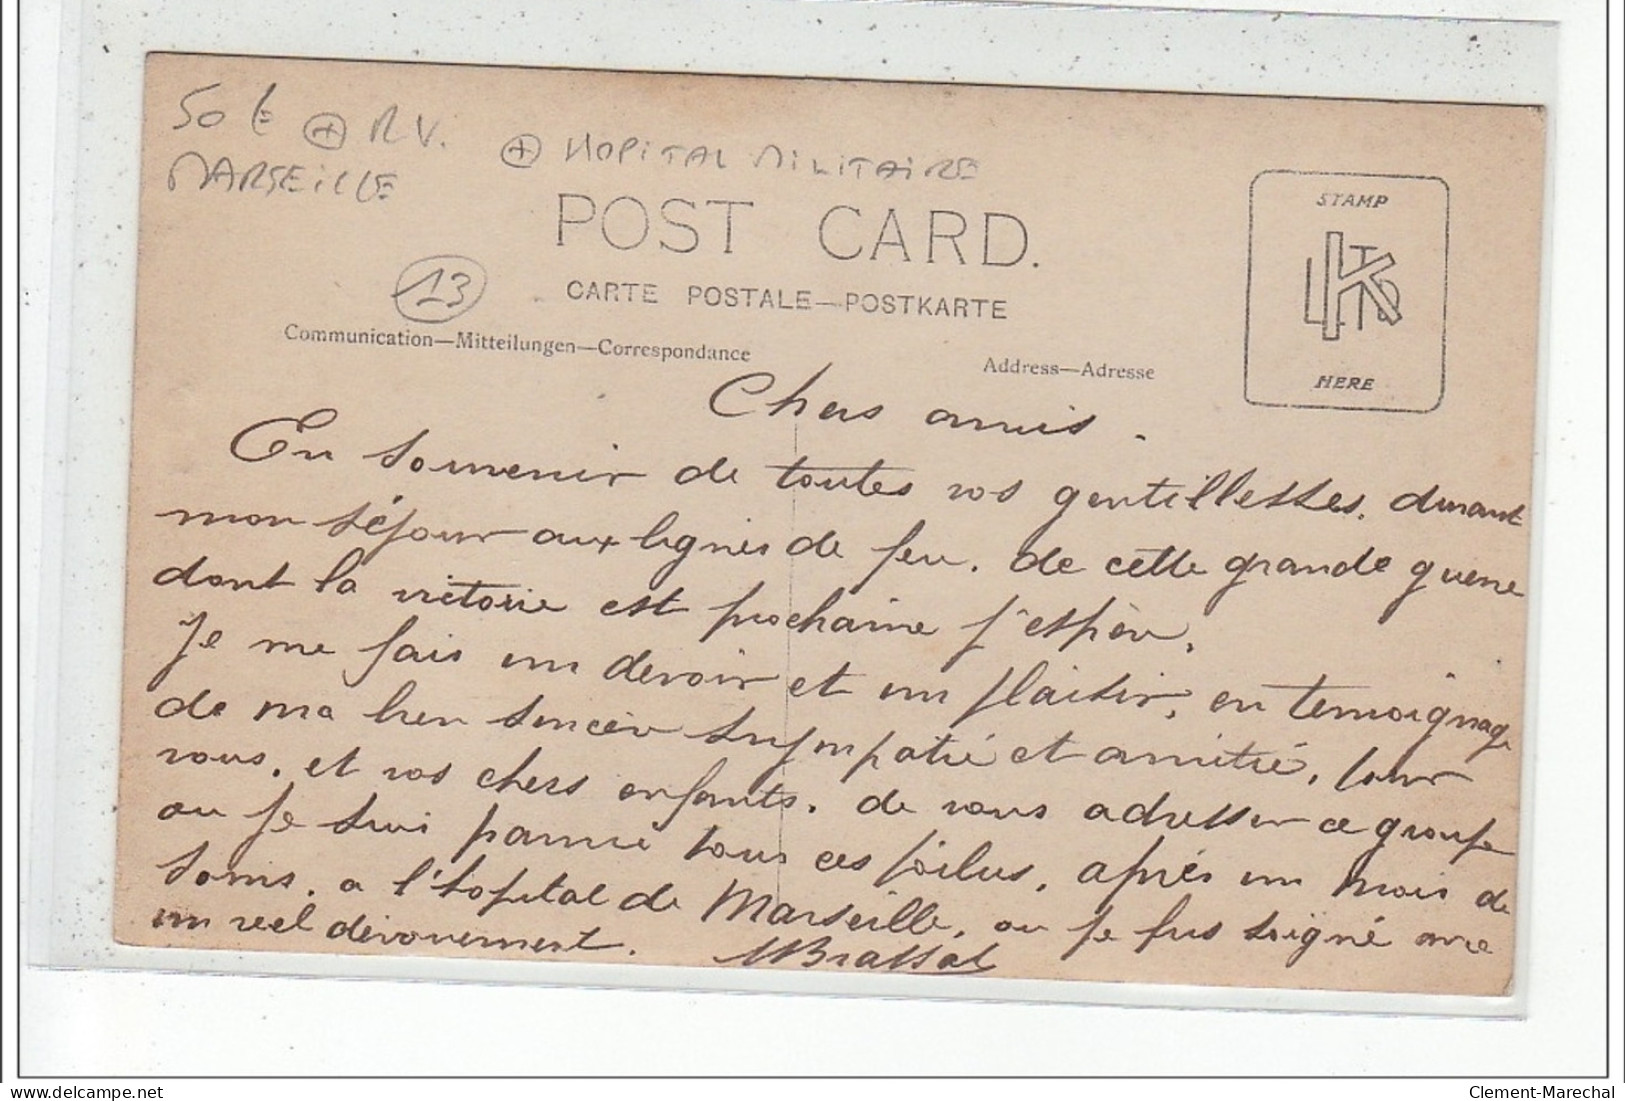 50 € + R V.
MARSEILLE
+ HOPITAL MILITAIRE
13
POST CARD.
CARTE POSTALE—POSTKARTE
Communication—Mitteilungen—Correspondance
Address—Adresse
STAMP
HERE
Chers amis.
En souvenir de toutes vos gentillesses. durant
mon séjour aux lignes de feu. de cette grande guerre
dont la victoire est prochaine j'espère.
Je me fais un devoir et un plaisir, en temoignage
de ma bien sincère sympatie et amitié, pour
vous. et vos chers enfants. de vous adresser ce groupe
ou je suis parmi tous ces poilus, après un mois de
soins. a l'hopital de Marseille, ou je fus soigné avec
un reel dévouement. Brassat
delcampe.net
Clement-Marechal